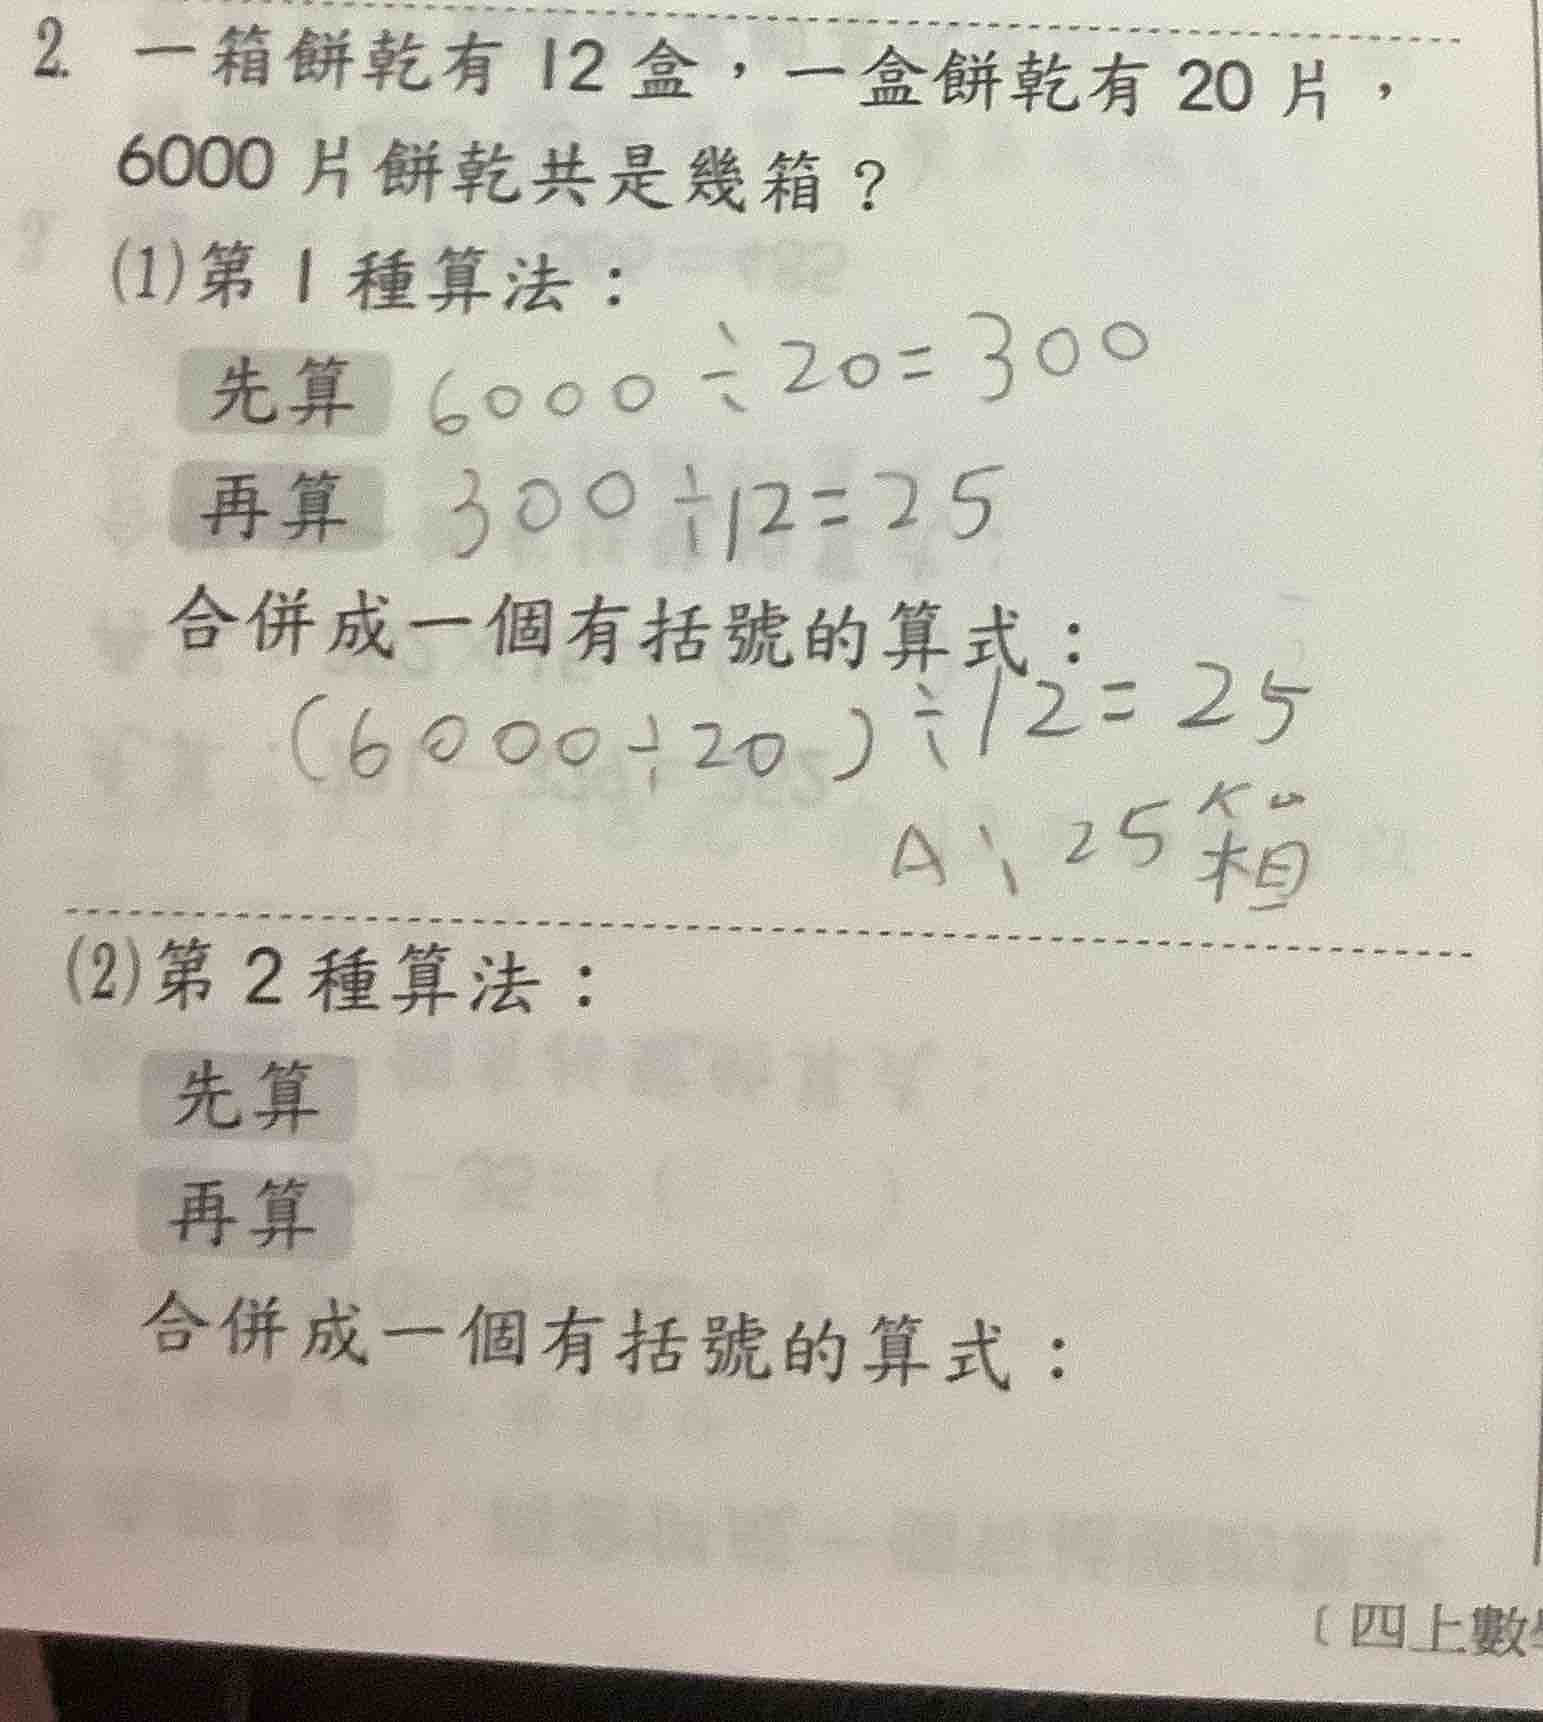 2. 一箱餅乾有 12 盒，一盒餅乾有 20 片，
6000 片餅乾共是幾箱？
(1)第 1 種算法：
先算 6000÷20=300
再算 300÷12=25
合併成一個有括號的算式：
(6000÷20)÷12=25
A:25箱
(2)第 2 種算法：
先算
再算
合併成一個有括號的算式：
〔四上數